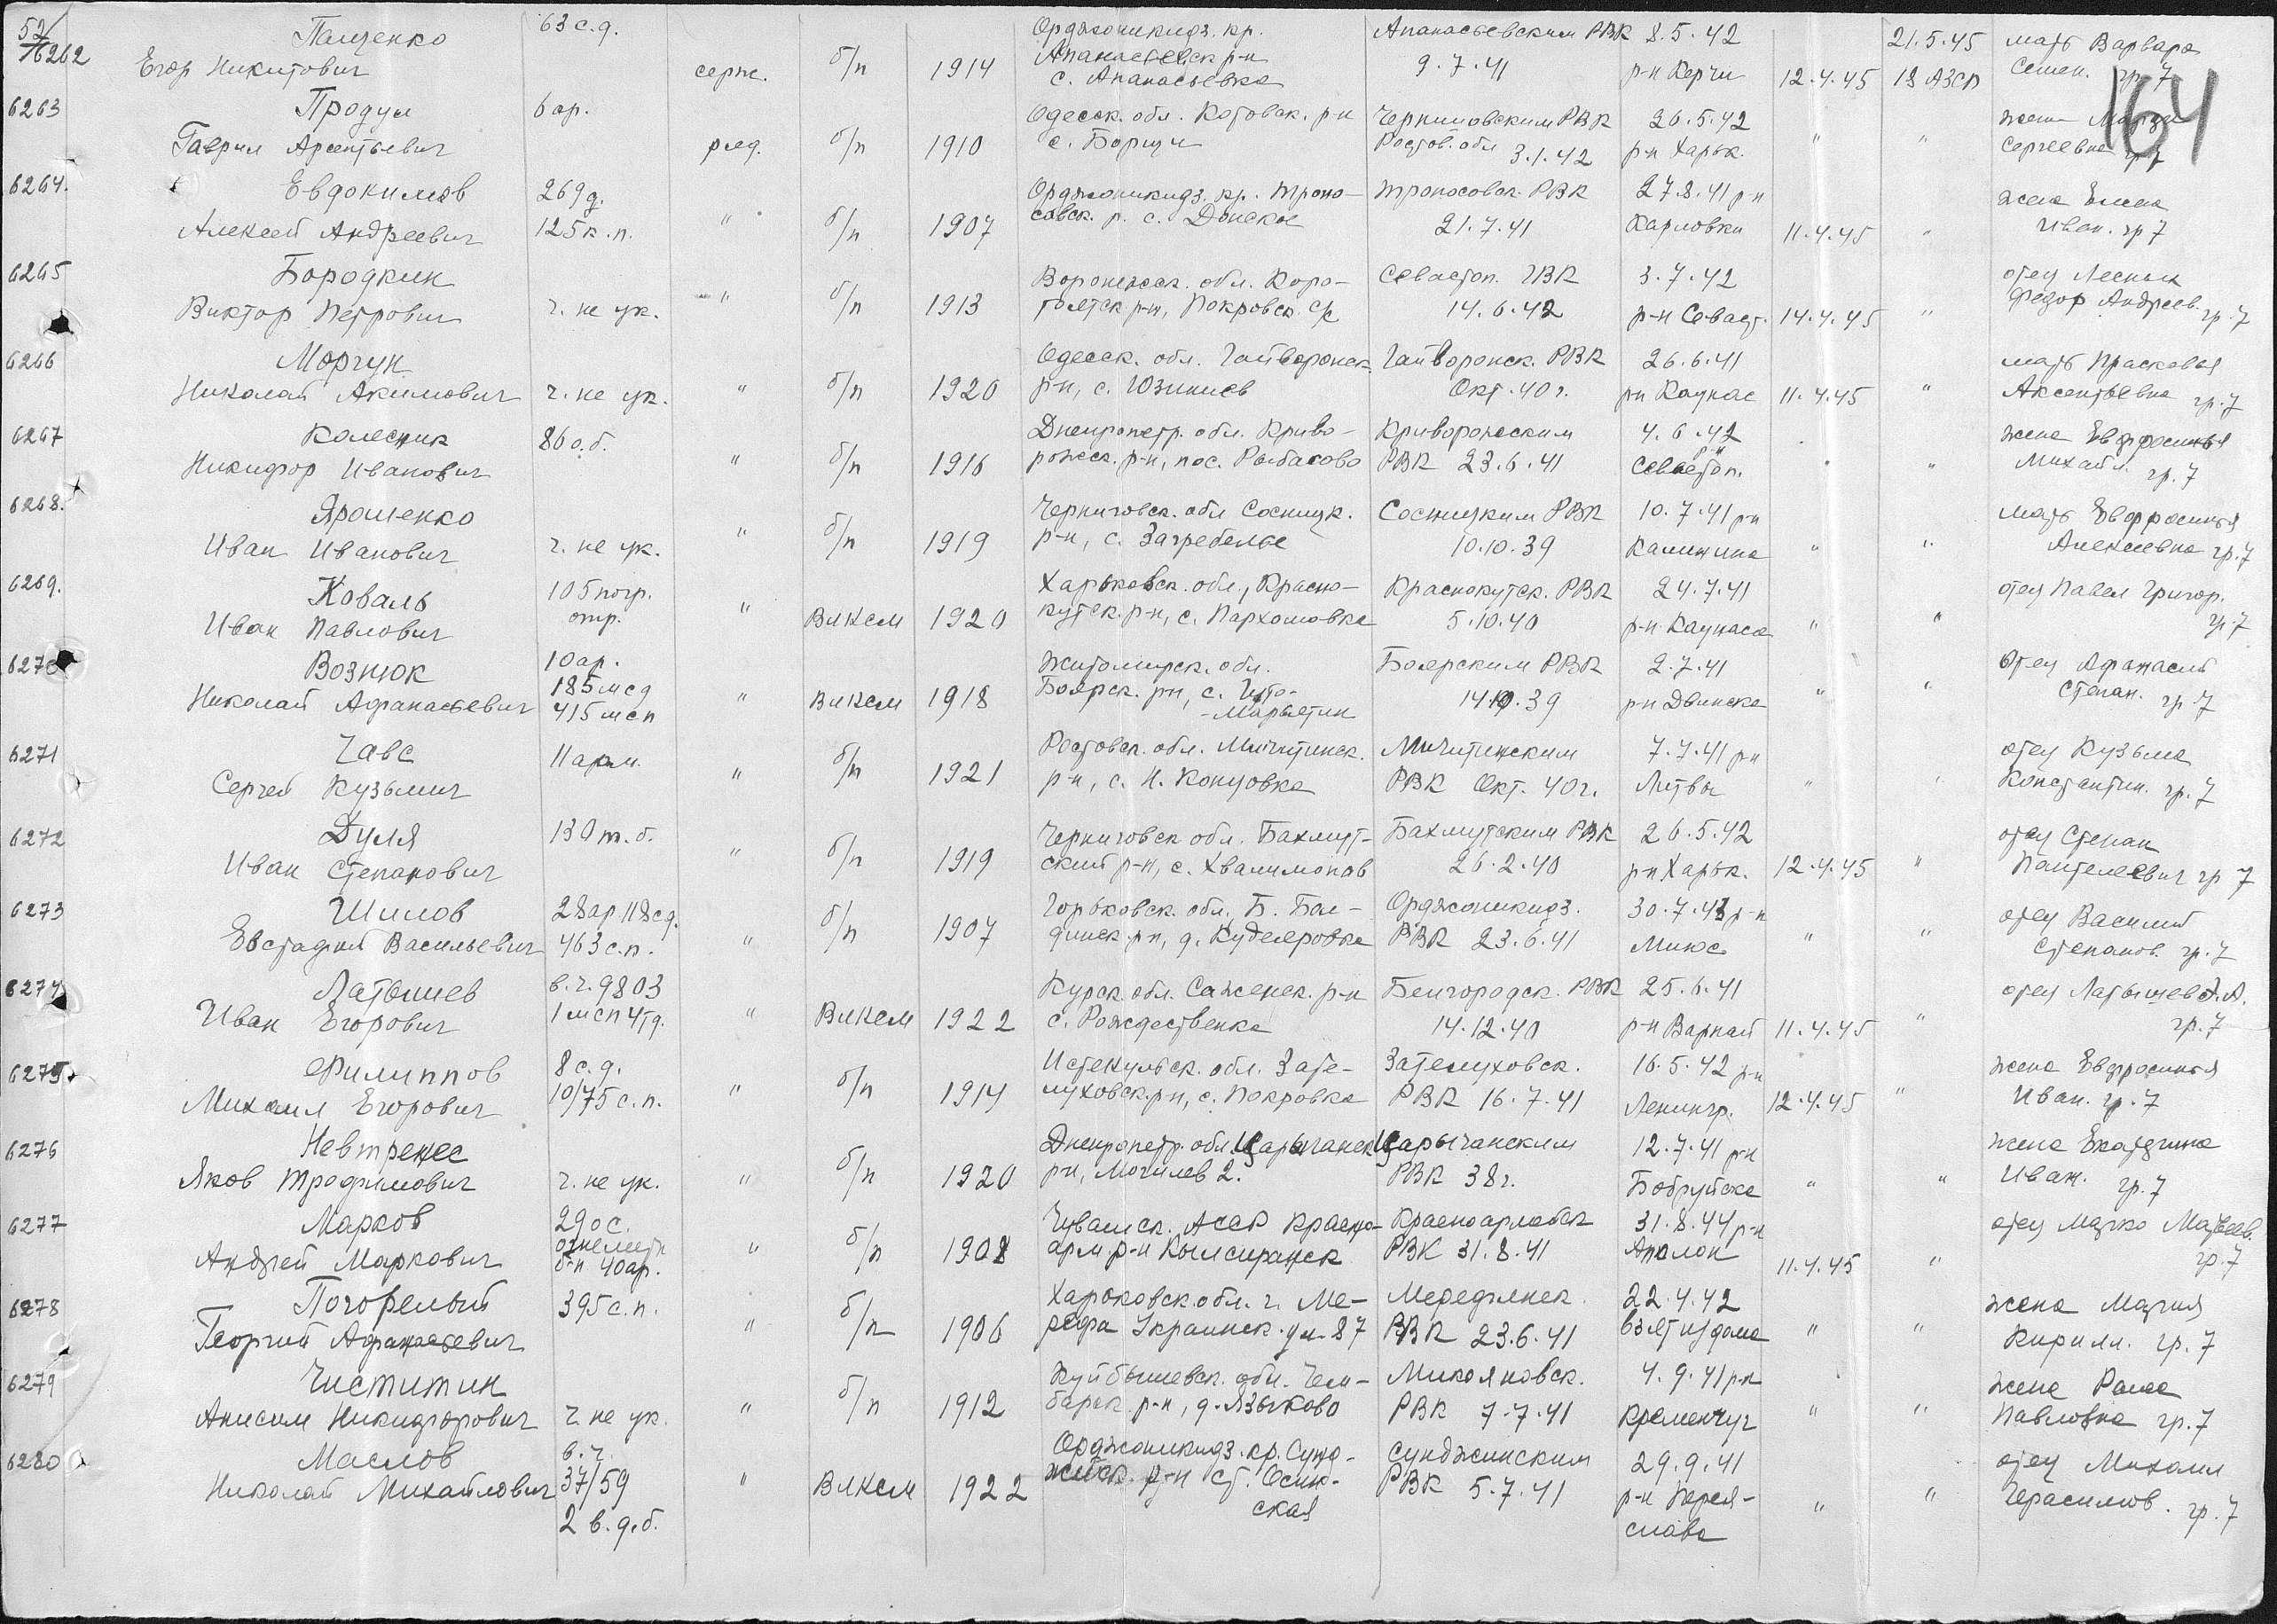 52/
6262 Пащенко 63 с.д. Орджоникидз. кр. Апанасьевским РВК 8.5.42 21.5.45 мать Варвара
Егор Никитович серж. б/п 1914 Апанасьевск р-н 9.7.41 р-н Керчи 12.4.45 12 АЗСП Семен. гр. 7
с. Апанасьевка
164
6263 Продун 6 ар. Одесск. обл. Котовск. р-н РВК 26.5.42 жена
Гаврил Арсентьевич ряд. б/п 1910 с. Борщи Ростов. обл 3.1.42 р-н Харьк. " " Сергеевна гр 7
6264. Евдокимов 269 д. Орджоникидз. кр. Труно- Труновск. РВК 27.8.41 р-н жена Елена
Алексей Андреевич 125 к.п. " б/п 1907 р. с. Донское 21.7.41 Карловки 11.4.45 " Иван. гр 7
6265 Бородкин Воронежск. обл. Коро- Севастоп. ГВК 3.7.42 отец
Виктор Петрович ч. не ук. " б/п 1913 тоякск р-н, Покровск. с/с 14.6.42 р-н Севаст. 14.4.45 " Федор Андреев. гр. 7
6266 Моргун Одесск. обл. Гайворонск. Гайворонск. РВК 26.6.41 мать Прасковья
Николай Акимович ч. не ук. " б/п 1920 р-н, с. Окт. 40 г. рн Каунас 11.4.45 " Аксентьевна гр. 7
6267 Колесник 86 о.б. Днепропетр. обл. Криво- Криворожским 4.6.42 жена Евфросинья
Никифор Иванович " б/п 1916 рожск. р-н, пос. Рыбасово РВК 23.6.41 р-н Севастоп. " " Михайл. гр. 7
6268. Ярошенко Черниговск. обл Сосницк. Сосницким РВК 10.7.41 р-н мать Евфросинья
Иван Иванович ч. не ук. " б/п 1919 р-н, с. Загребелье 10.10.39 Калинина " " Алексеевна гр. 7
6269. Коваль 105 погр. Харьковск. обл., Красно- Краснокутск. РВК 24.7.41 отец Павел Григор.
Иван Павлович отр. " ВЛКСМ 1920 кутск. р-н, с. Пархомовка 5.10.40 р-н Каунаса " " гр. 7
6270 Вознюк 10 ар. Житомирск. обл. Боярским РВК 2.7.41 отец Афанасий
Николай Афанасьевич 185 мсд " ВЛКСМ 1918 Боярск. рн, с. 39 р-н Двинска " " Степан. гр. 7
415 мсп
6271 Чавс 11 арм. Ростовск. обл. Мичитинск. Мичитинским 7.7.41 р-н отец Кузьма
Сергей Кузьмич " б/п 1921 р-н, с. Н. РВК Окт. 40 г. Литвы " " Константин. гр. 7
6272 Дуля 130 т.б. Черниговск обл. Бахмут- Бахмутским РВК 26.5.42 отец Степан
Иван Степанович " б/п 1919 ский р-н, с. 26.2.40 р-н Харьк. 12.4.45 " Пантелеевич гр 7
6273 Шилов 28 ар 118 сд. Горьковск. обл. Б. Бол- Орджоникидз. 30.7.43 р-н отец Василий
Евстафий Васильевич 463 с.п. " б/п 1907 динск. рн, д. Кудеяровка РВК 23.6.41 Миюс " " Степанов. гр. 7
6274 Латышев в.ч. 9803 Курск. обл. Саженск. р-н Белгородск. РВК 25.6.41 отец Латышев
Иван Егорович 1 мсп 4 тд. " ВЛКСМ 1922 с. Рождественка 14.12.40 р-н Варнай 11.4.45 " гр. 7
6275. Филиппов 8 с.д. 16.5.42 р-н жена Евфросинья
Михаил Егорович 10/75 с.п. " б/п 1914 с. Покровка РВК 16.7.41 Ленингр. 12.4.45 " Иван. гр. 7
6276 Невтренес Днепропетр. обл. Царычанск Царычанским 12.7.41 р-н жена Екатерина
Яков Трофимович ч. не ук. " б/п 1920 рн, Могилев 2. РВК 38 г. Бобруйска " " Иван. гр. 7
6277 Марков 29 о с. Чувашск. АССР Красно- Красноармейск 31.8.44 р-н отец Марко Матвеев.
Андрей Маркович огнеметн " б/п 1908 арм р-н РВК 31.8.41 Аполон 11.4.45 " гр. 7
б-н 40 ар.
6278 Погорелый 395 с.п. Харьковск. обл. г. Ме- 22.4.42 жена Мария
Георгий Афанасьевич " б/п 1906 рефа Украинск. ул. 87 РВК 23.6.41 взят из дома " " Кирилл. гр. 7
6279 Чиститин Куйбышевск. обл. Чем- Микояновск. 4.9.41 р-н жена Раиса
Анисим Никифорович ч. не ук. " б/п 1912 барск. р-н, д. Языково РВК 7.7.41 Кременчуг " " Павловна гр. 7
6280 Маслов в.ч. Орджоникидз. кр. Сунд- Сунджинским 29.9.41 отец Михаил
Николай Михайлович 37/59 " ВЛКСМ 1922 женск. р-н ст. Осин- РВК 5.7.41 р-н Перея- " " Герасимов. гр. 7
2 в.д.б. ская слава